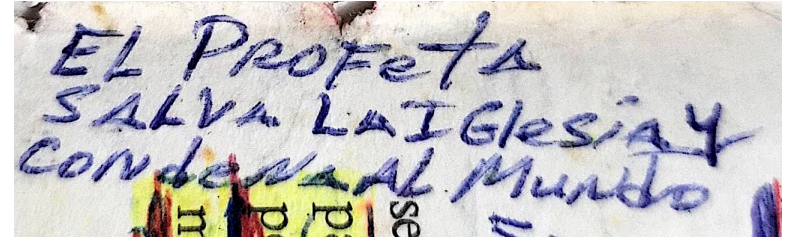 EL PROFeTA
SALVA LA IGlesia y
CONdeNA AL MUNdo